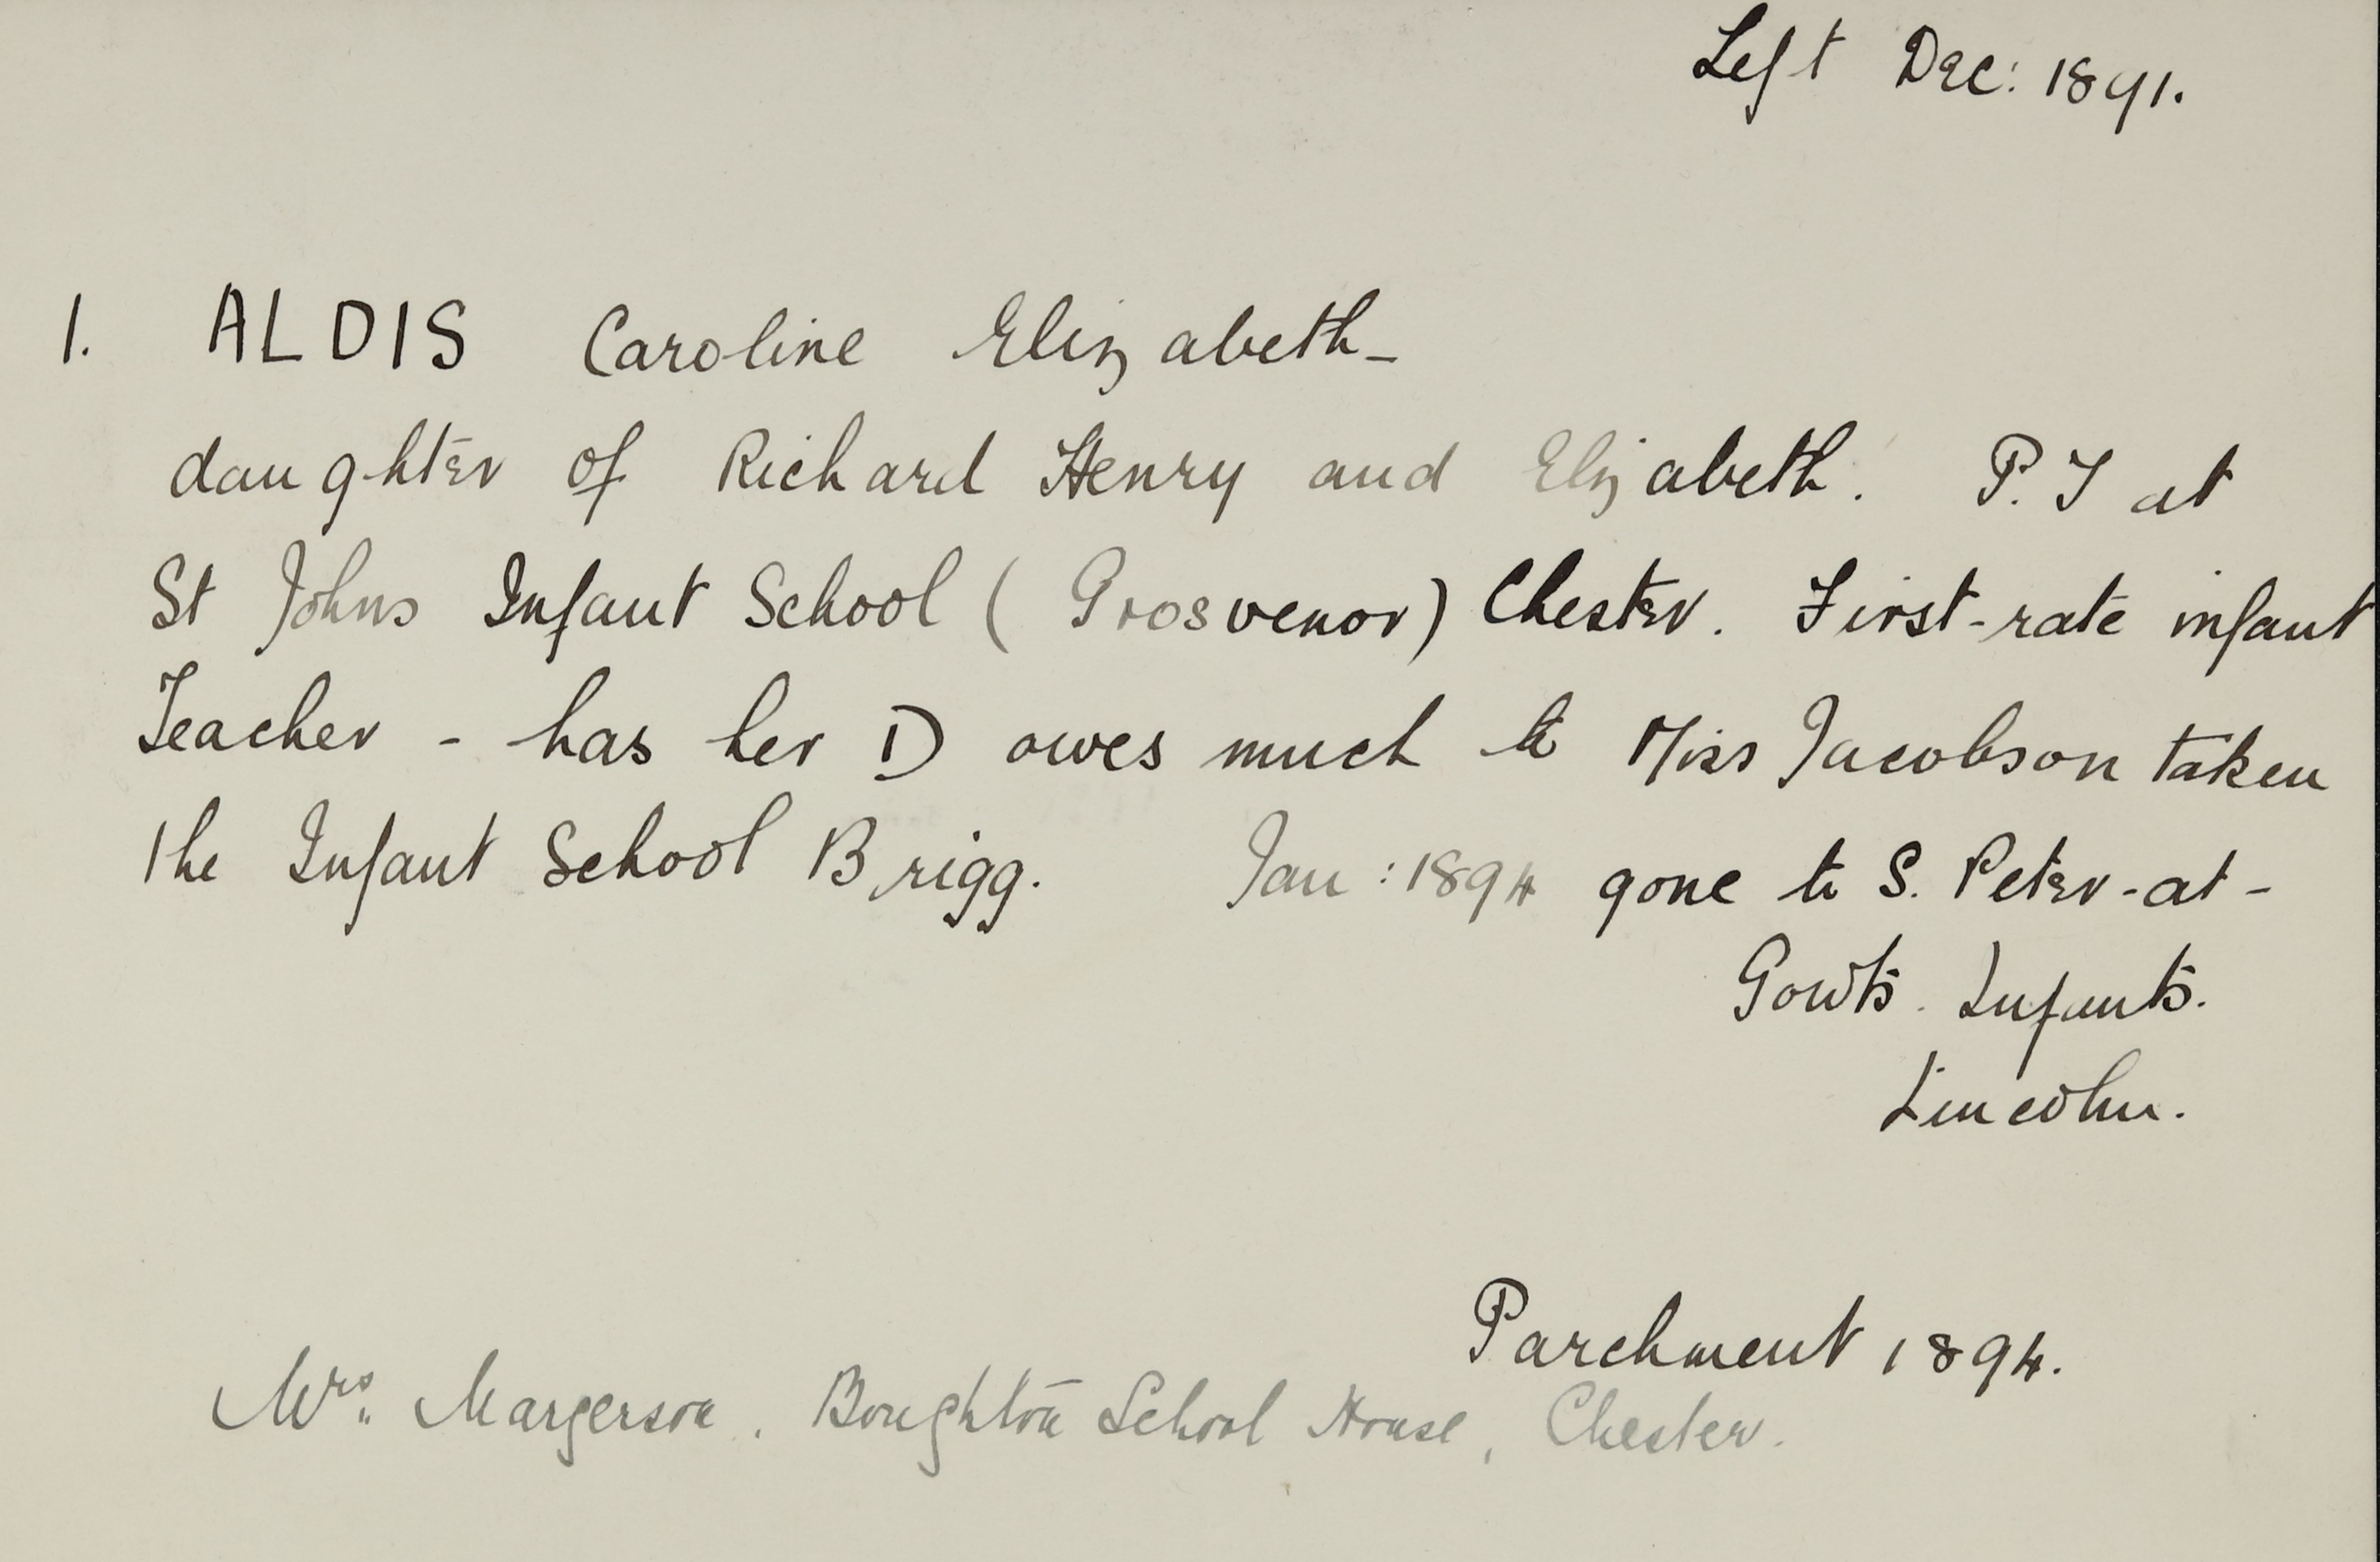 Left Dec: 1891.
1. ALDIS Caroline Elizabeth -
daughter of Richard Henry and Elizabeth. P.T at
St Johns Infant School (Grosvenor) Chester. First-rate infant
Teacher - has her D owes much to Miss Jacobson taken
the Infant School Brigg. Jan: 1894 gone to S. Peter-at-
Gowts. Infants.
Lincoln.
Parchment 1894.
Mrs. Margerson. Boughton School House, Chester.